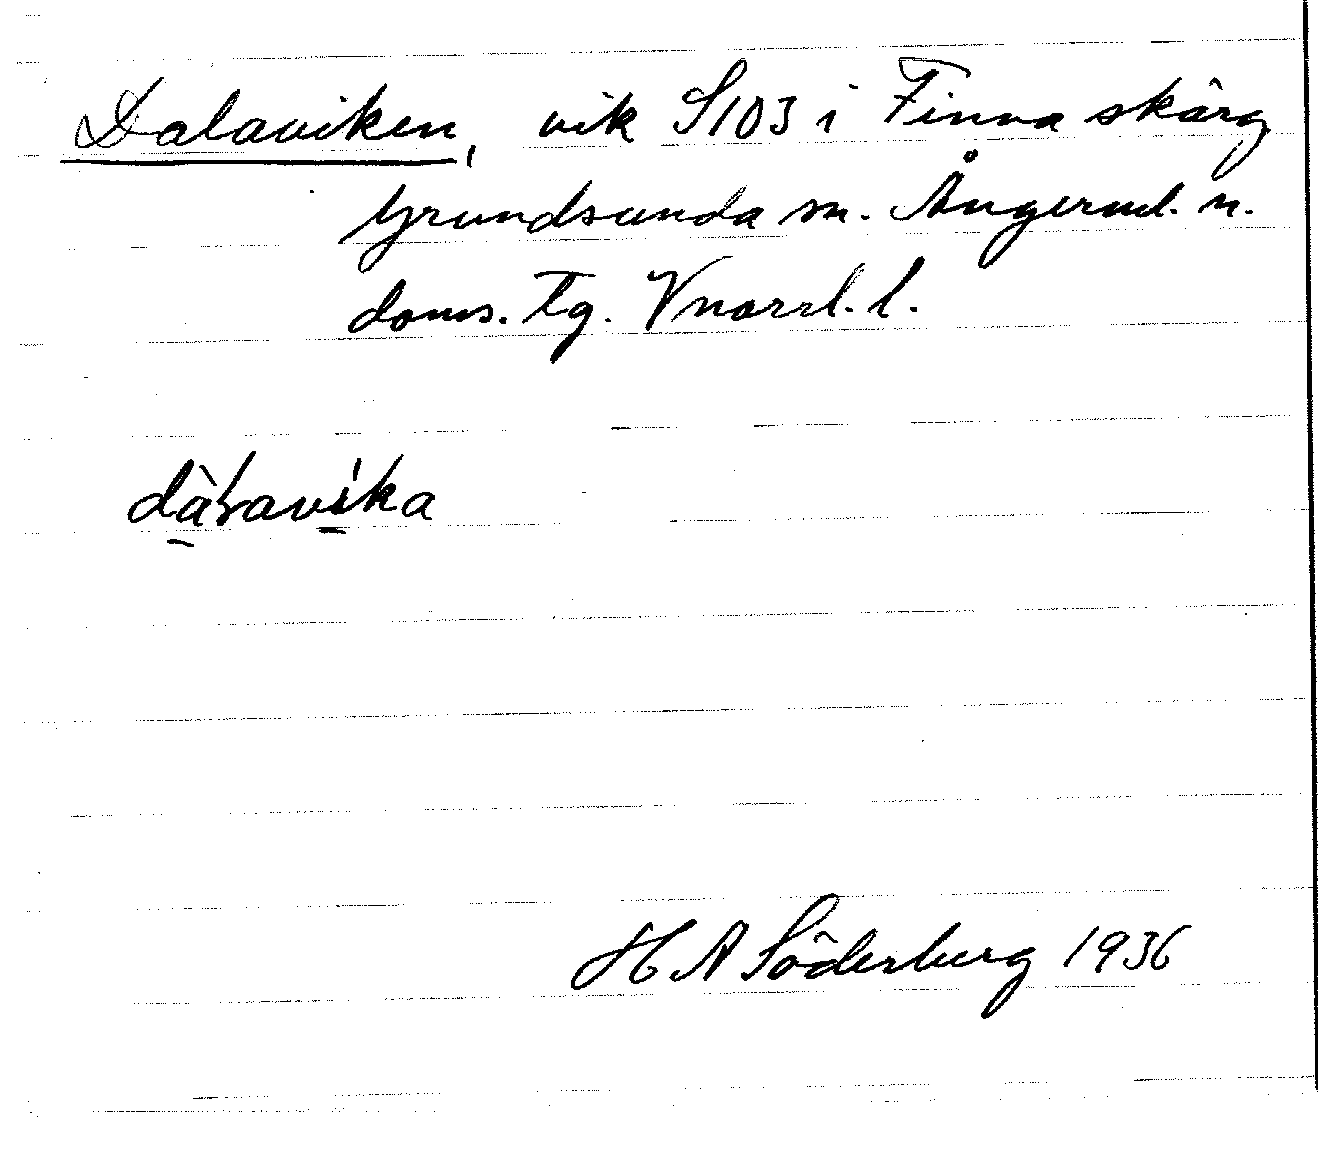 Dalaviken, vik S103 i Finna skärg
Grundsunda sn. Ångerml. n.
doms. Tg. Vnorrl. l.
dàɫavíka
H A Söderberg 1936